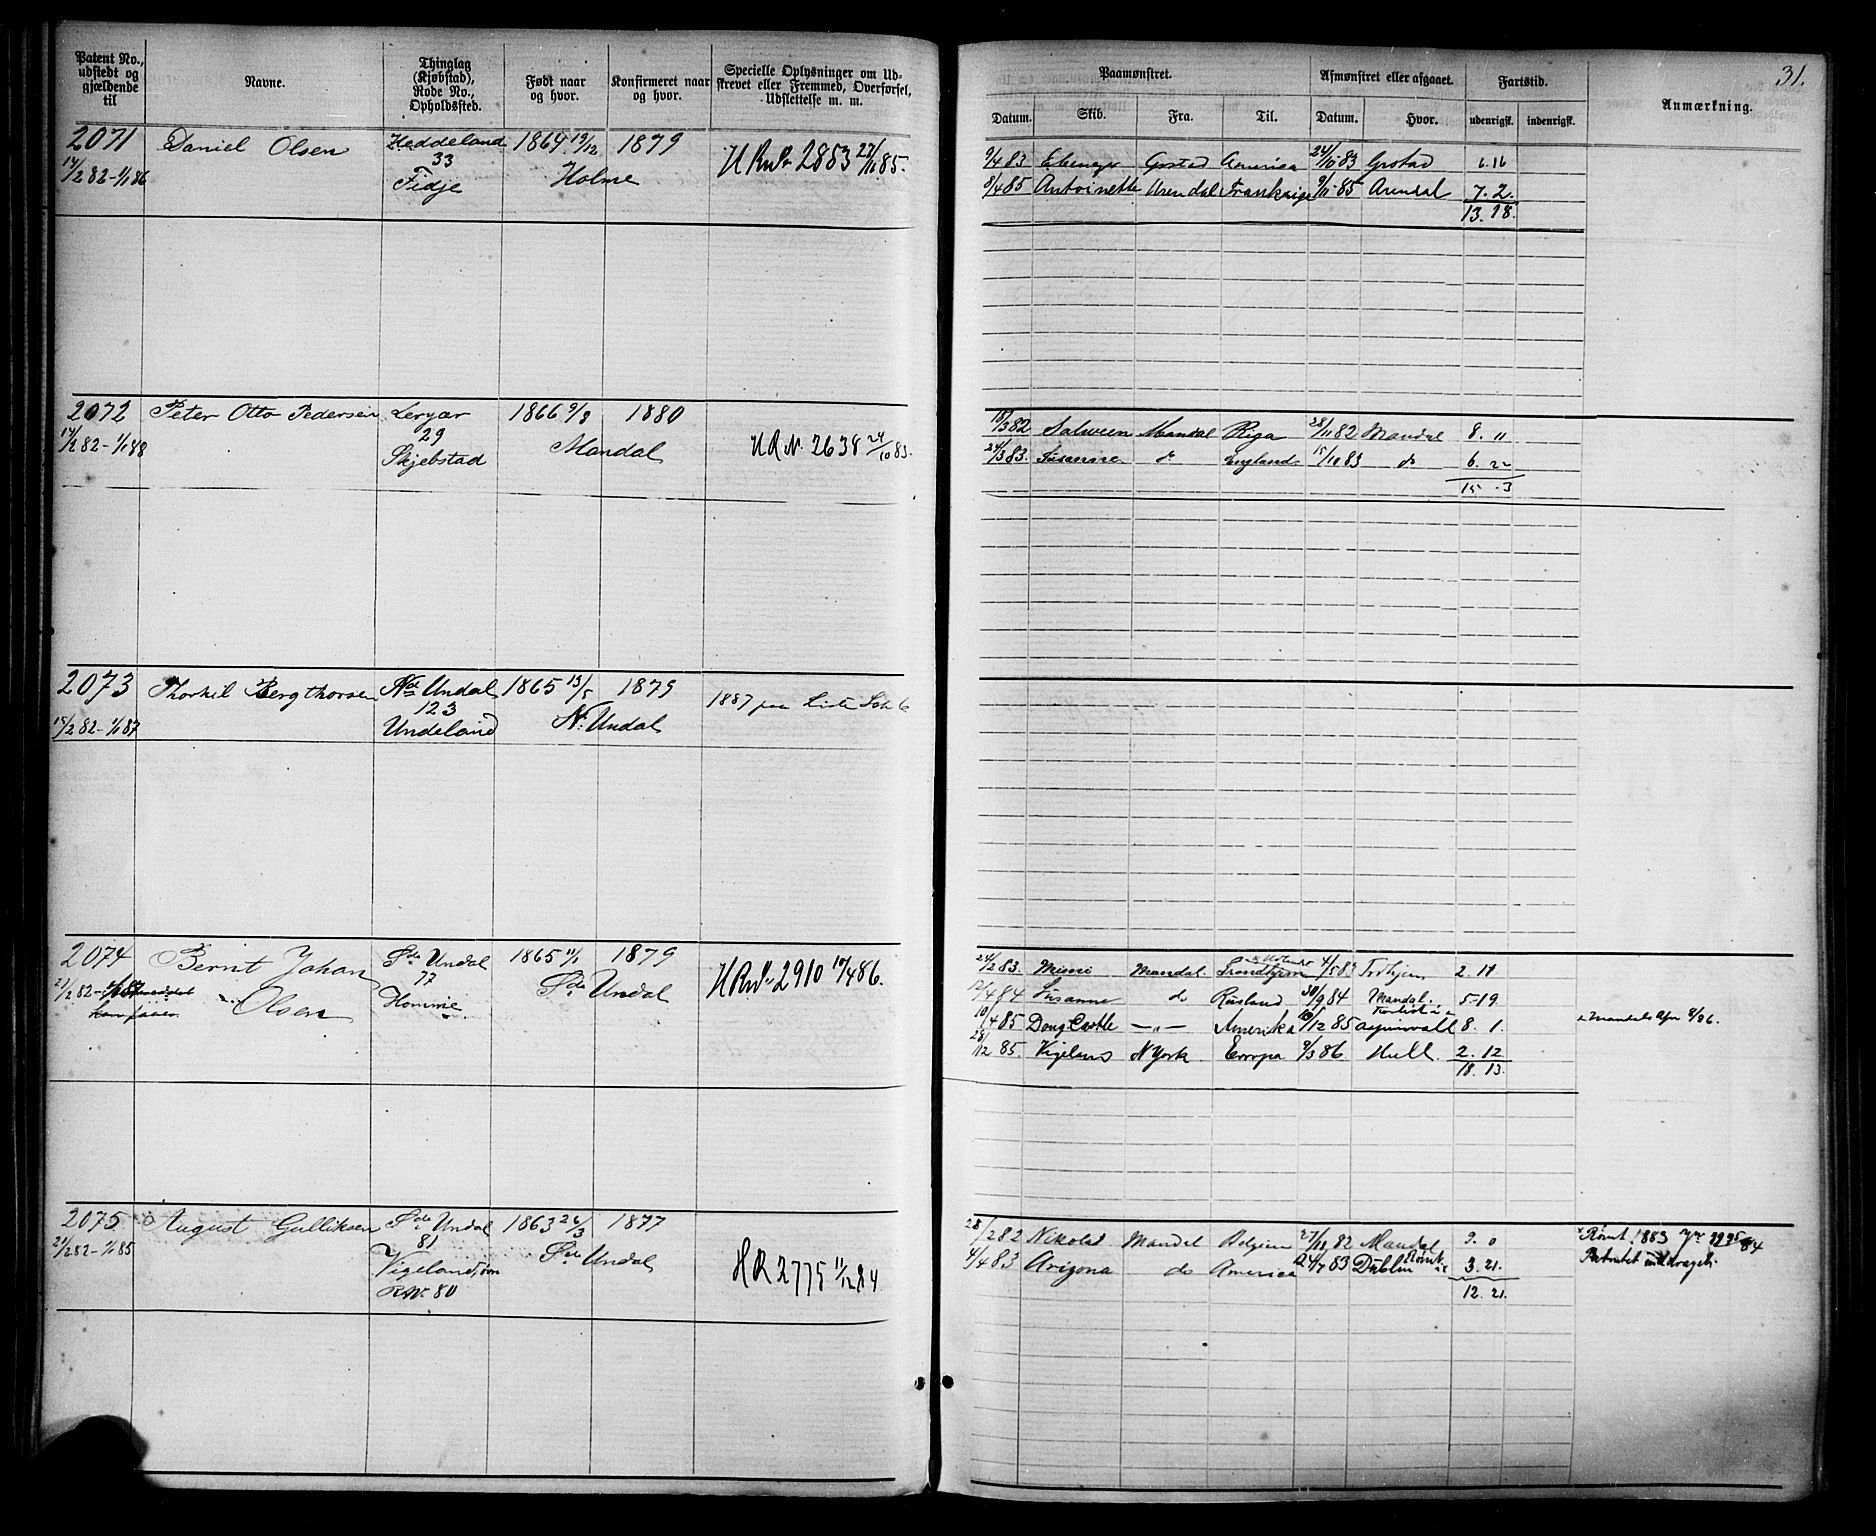 31.
Patent No., udstedt og gjældende til
Navne.
Thinglag (Kjøbstad), Rode No., Opholdssted.
Født naar og hvor.
Konfirmeret naar og hvor.
Specielle Oplysninger om Udskrevet eller Fremmed, Overførsel, Udslettelse m. m.
Paamønstret.
Afmønstret eller afgaaet.
Fartstid.
Anmærkning.
Datum. Skib. Fra. Til. Datum. Hvor. udenrigsk. indenrigsk.
2071 Daniel Olsen Heddeland 1864 19/12 1879
14/2 82 - 1/1 86 33 Holme H R No 2853 27/11 85.
Fidje
9/4 83 Ebenezer Grstad America 24/10 83 Grstad 6.16
8/4 85 Antoinette Arendal Frankrige 9/11 85 Arendal 7.2.
13.18.
2072 Peter Otto Pedersen Leryær 1866 9/8 1880
14/2 82 - 1/1 88 29 Mandal H R N. 2638 24/10 83.
Skjebstad
18/3 82 Salween Mandal Riga 28/11 82 Mandal 8. "
24/3 83. Susanne do England 15/10 83 do 6. 22
15 . 3
2073 Thorkil Bergthorsen Nd Undal 1865 13/5 1879
15/2 82 - 1/1 87 123 N. Undal 1887 paa Liste
Undeland
2074 Bernt Johan Sdr Undal 1865 11/1 1879
21/2 82 - 1/1 87 77 Sdr Undal H R No 2910 10/4 86.
Olsen Homme
24/2 83. Mimi Mandal Trondhjem 4/5 83 Trdhjem 2. 11
12/4 84 Susanne do Rusland 30/9 84 Mandal. 5-19
10/4 85 Doug Castle - " - Amerika 10/12 85 Aspinwall 8. 1.
28/12 85. Vigeland N York Europa 9/3 86 Hull 2. 12
18. 13.
2075 August Gulliksen Sdr Undal 1863 26/3 1877
21/2 82 - 1/1 85 81 Sdr Undal H R 2775 11/12 84
Vigeland,
R No. 80
28/2 82 Nikolai Mandal Belgien 27/11 82 Mandal 9. 0
4/4 83 Arizona do America 24/7 83 Dublin Rømt 3. 21.
12. 21.
Rømt 1883
Patentet inddraget.